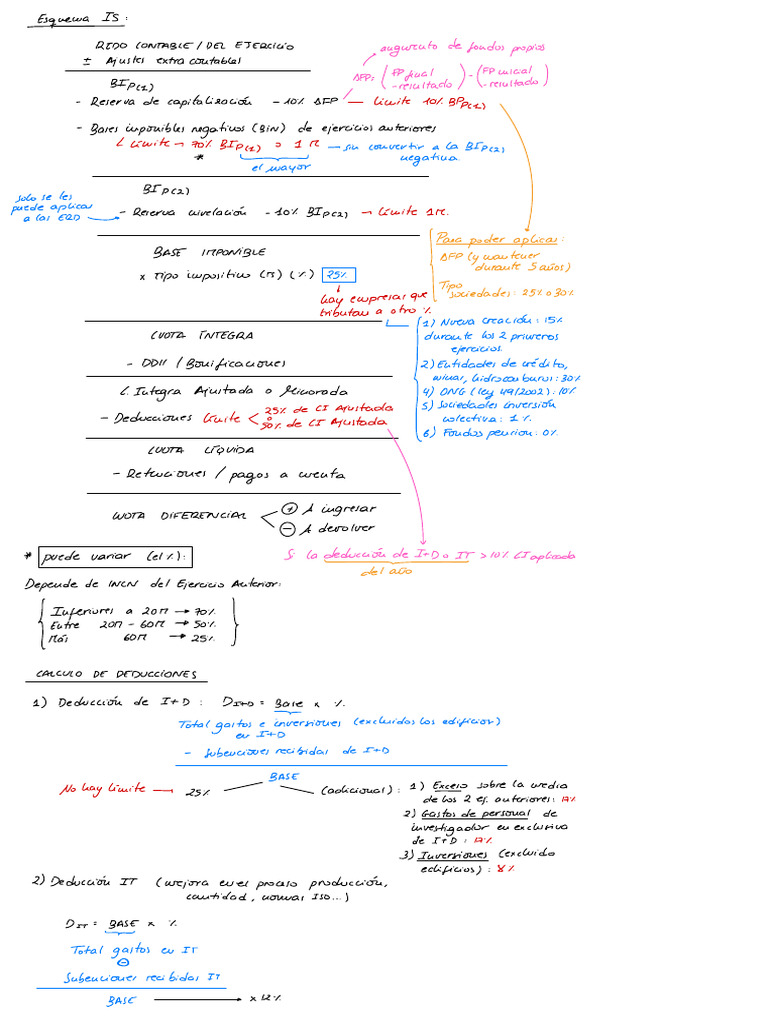 Esquema IS:
RTDO CONTABLE / DEL EJERCICIO
± Ajustes extracontables
augmento de fondos propios
ΔFP: (FP final - resultado) - (FP inicial - resultado)
BIP(1)
- Reserva de capitalización - 10% ΔFP → Límite 10% BIP(1)
- Bases imponibles negativas (BIN) de ejercicios anteriores
L Límite → 70% BIP(1) o 1M → sin convertir a la BIP(2) negativa
*
el mayor
BIP(2)
Solo se les
puede aplicar
a las ERD
- Reserva nivelación - 10% BIP(2) → Límite 1M.
Para poder aplicar:
ΔFP (y mantener
durante 5 años)
Tipo
sociedades: 25% o 30%
BASE IMPONIBLE
x Tipo impositivo (IS) (%) 25%
hay empresas que
tributan a otro %
1) Nueva creación: 15%
durante los 2 primeros
ejercicios.
2) Entidades de crédito,
minar, hidrocarburos: 30%
4) ONG (ley 49/2002): 10%
5) Sociedades inversión
colectiva: 1%
6) Fondos pension: 0%
CUOTA ÍNTEGRA
- DDII / Bonificaciones
C. Integra Ajustada o Minorada
- Deducciones Límite < 25% de CI Ajustada
o
50% de CI Ajustada
CUOTA LÍQUIDA
- Retenciones / pagos a cuenta
CUOTA DIFERENCIAL < + A ingresar
- A devolver
Si la deducción de I+D o IT > 10% CI aplicada
del año
* puede variar (el %):
Depende de INCN del Ejercicio Anterior:
Inferiores a 20M → 70%
Entre 20M - 60M → 50%
Más 60M → 25%
CALCULO DE DEDUCCIONES
1) Deducción de I+D: D I+D = Base x %.
Total gastos e inversiones (excluidos los edificios)
en I+D
- Subenciones recibidas de I+D
BASE
No hay Límite → 25%
(adicional):
1) Exceso sobre la media
de los 2 ej. anteriores: 17%
2) Gastos de personal de
investigador en exclusiva
de I+D: 17%
3) Inversiones (excluido
edificios): 8%
2) Deducción IT (mejora en el proceso producción,
cantidad, normas ISO...)
D IT = BASE x %
Total gastos en IT
-
Subenciones recibidas IT
BASE → x 12%